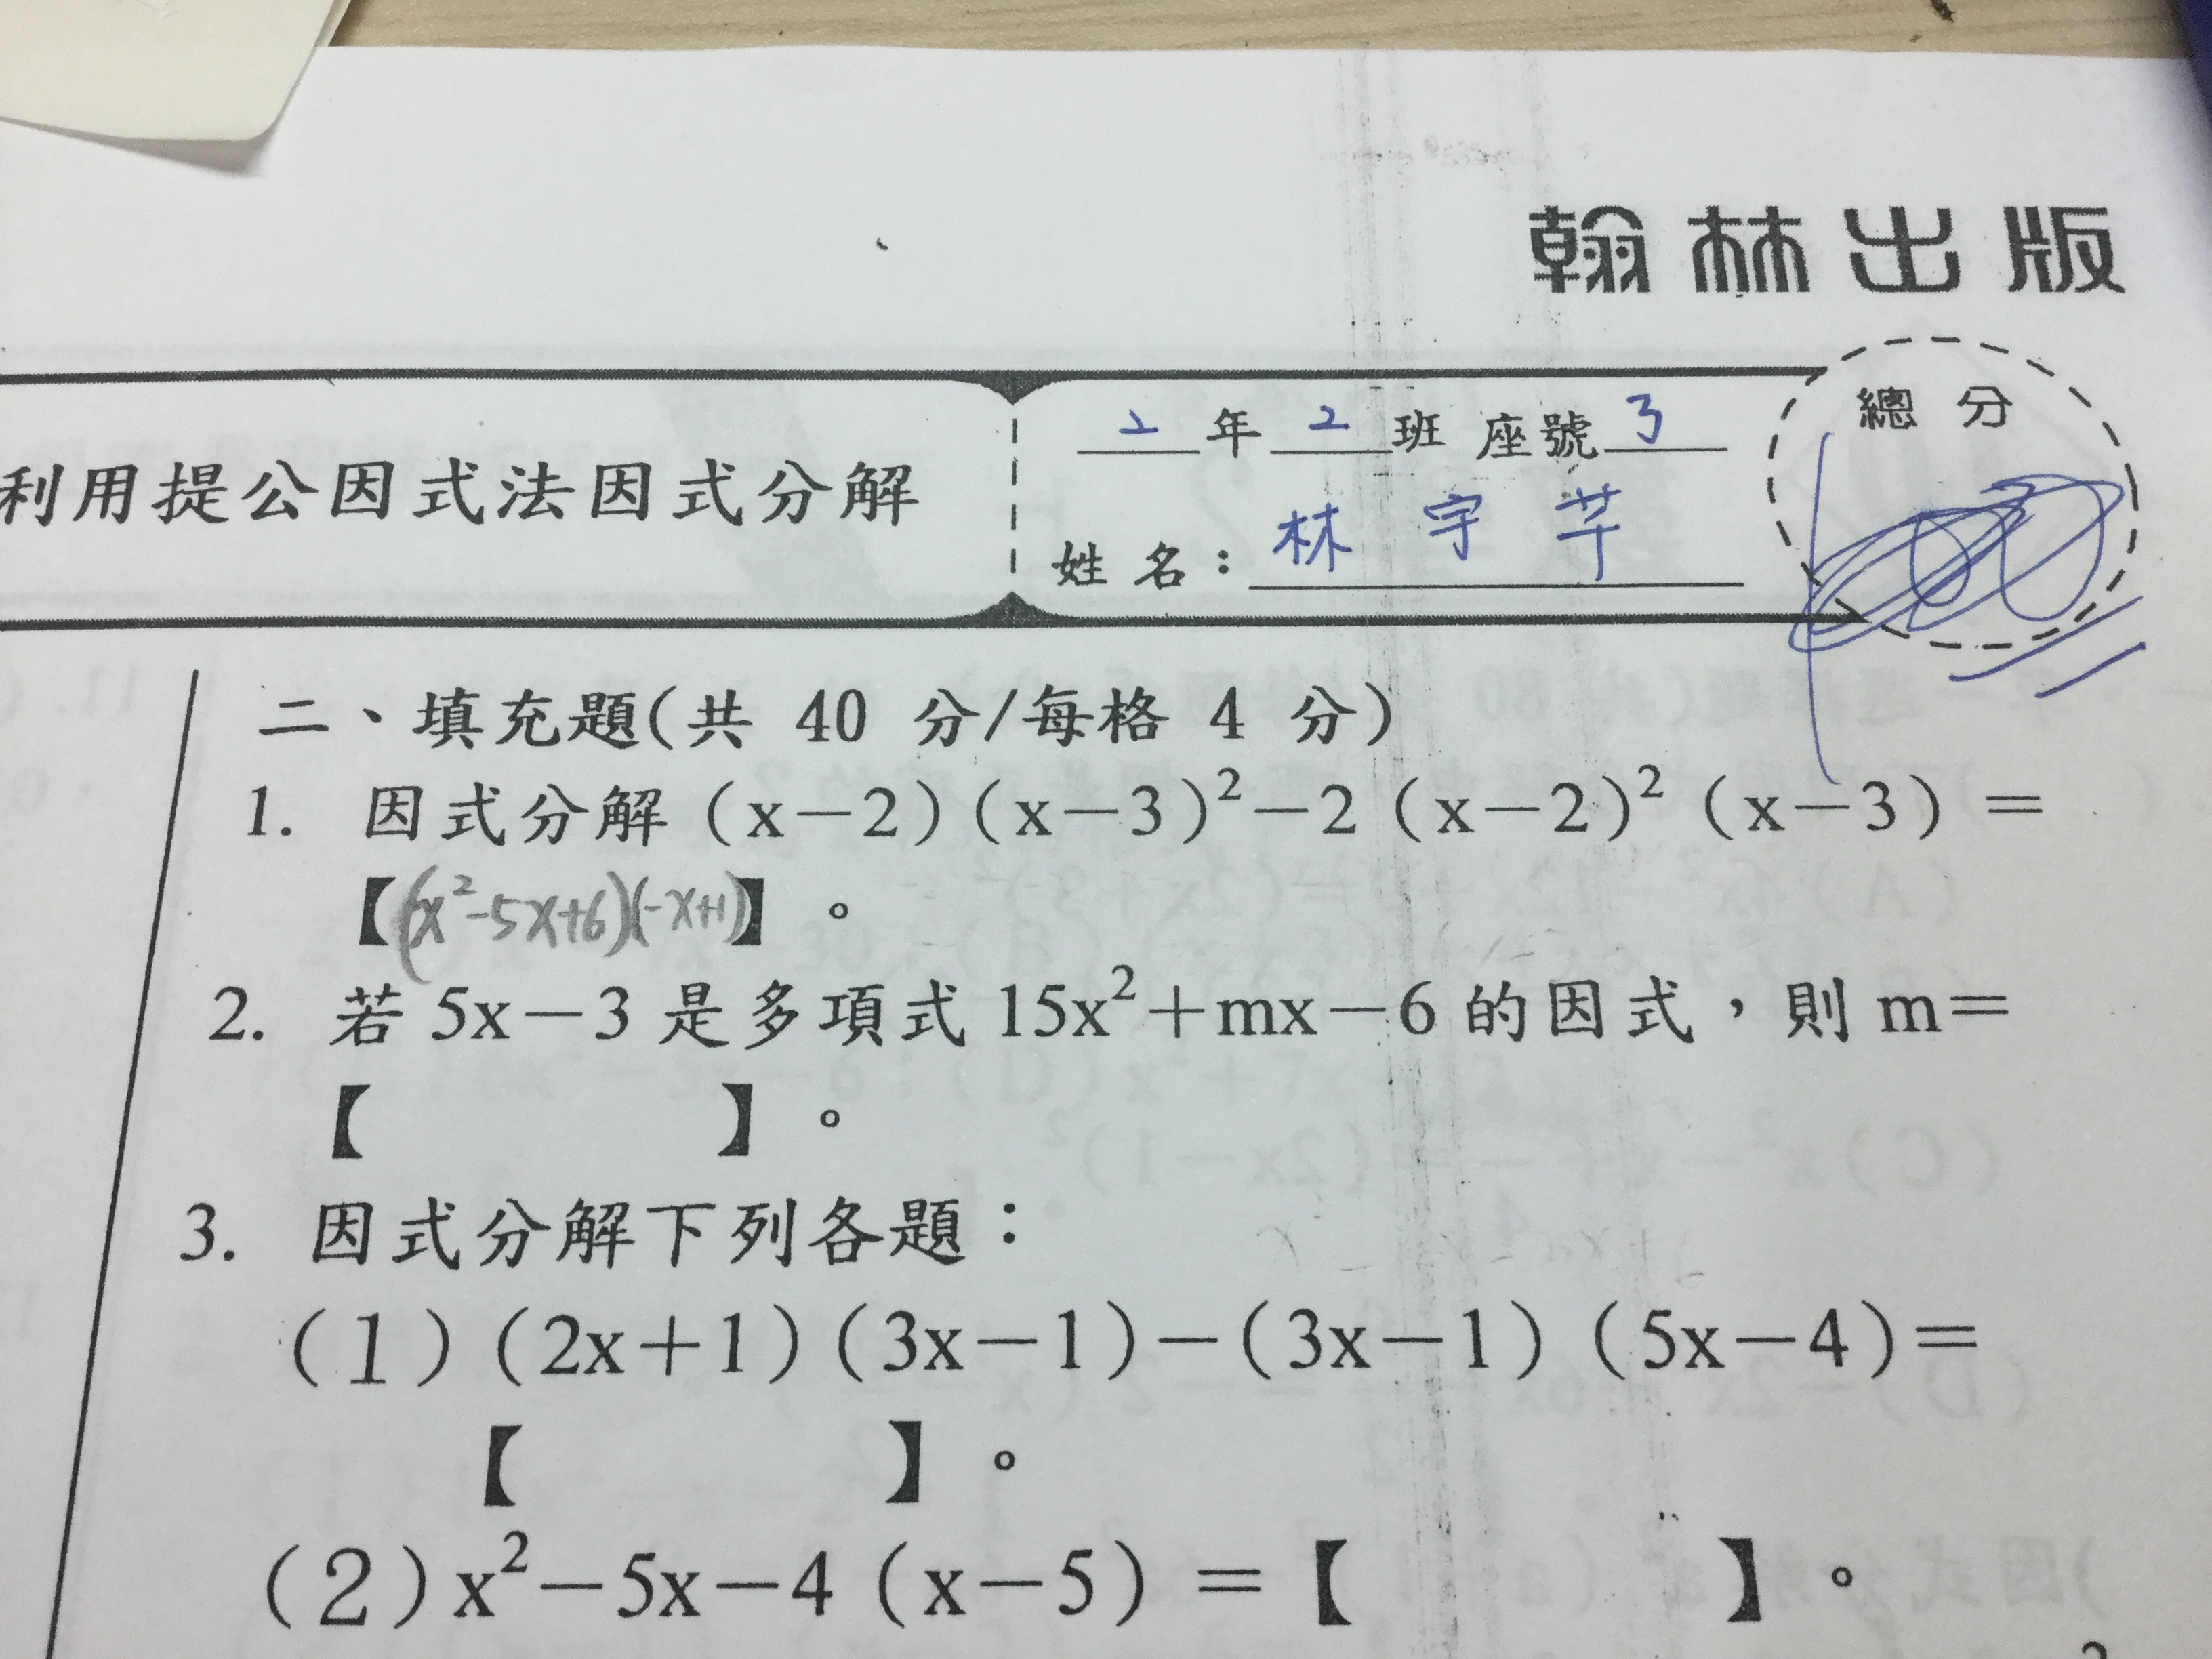 翰林出版
利用提公因式法因式分解
2年2班 座號3
姓名：林宇芊
總分
二、填充題(共 40 分/每格 4 分)
1. 因式分解（x－2）（x－3）²－2（x－2）²（x－3）＝
【(x²-5x+6)(-x+1)】。
2. 若 5x－3 是多項式 15x²＋mx－6 的因式，則 m＝
【 】。
3. 因式分解下列各題：
（1）（2x＋1）（3x－1）－（3x－1）（5x－4）＝
【 】。
（2）x²－5x－4（x－5）＝【 】。